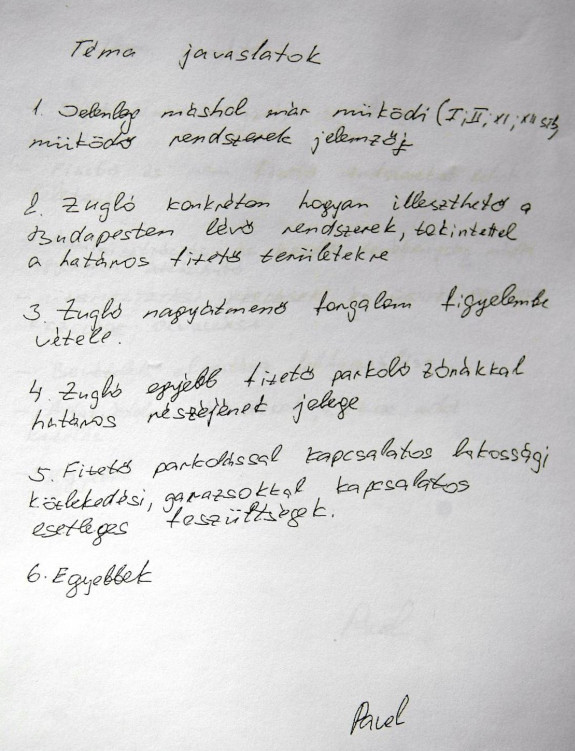 Téma javaslatok
1. Jelenleg máshol már működi (I; II; XI; XII stb,
működő rendszerek jelemzői
2. Zugló konkrétan hogyan illeszthető a
Budapesten lévő rendszerek, tekintettel
a határos fizető területekre
3. Zugló nagyátmenő forgalom figyelembe
vétele.
4. Zugló egyébb fizető parkoló zónákkal
határos részéjének jelege
5. Fizető parkolással kapcsalatos lakossági
közlekedési, garázsokkal kapcsalatos
esetleges feszültségek.
6. Egyebbek
Pavel